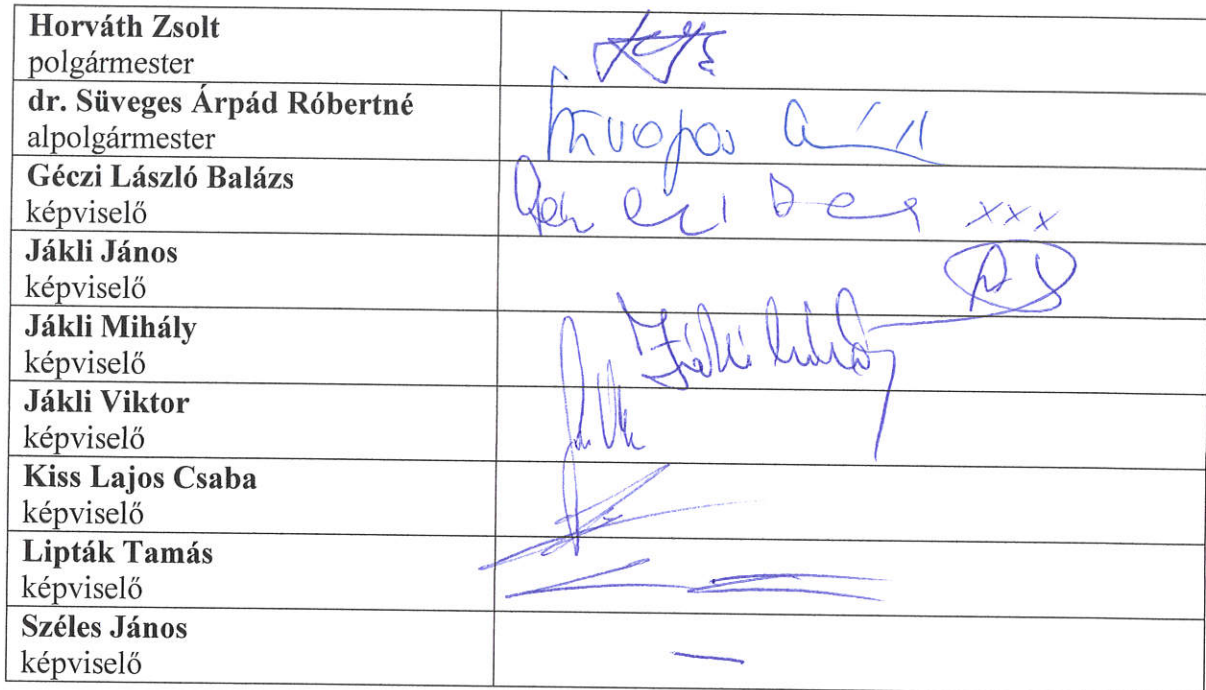 Horváth Zsolt
polgármester
dr. Süveges Árpád Róbertné
alpolgármester
Géczi László Balázs
képviselő
xxx
Jákli János
képviselő
Jákli Mihály
képviselő
Jákli Viktor
képviselő
Kiss Lajos Csaba
képviselő
Lipták Tamás
képviselő
Széles János
képviselő
—